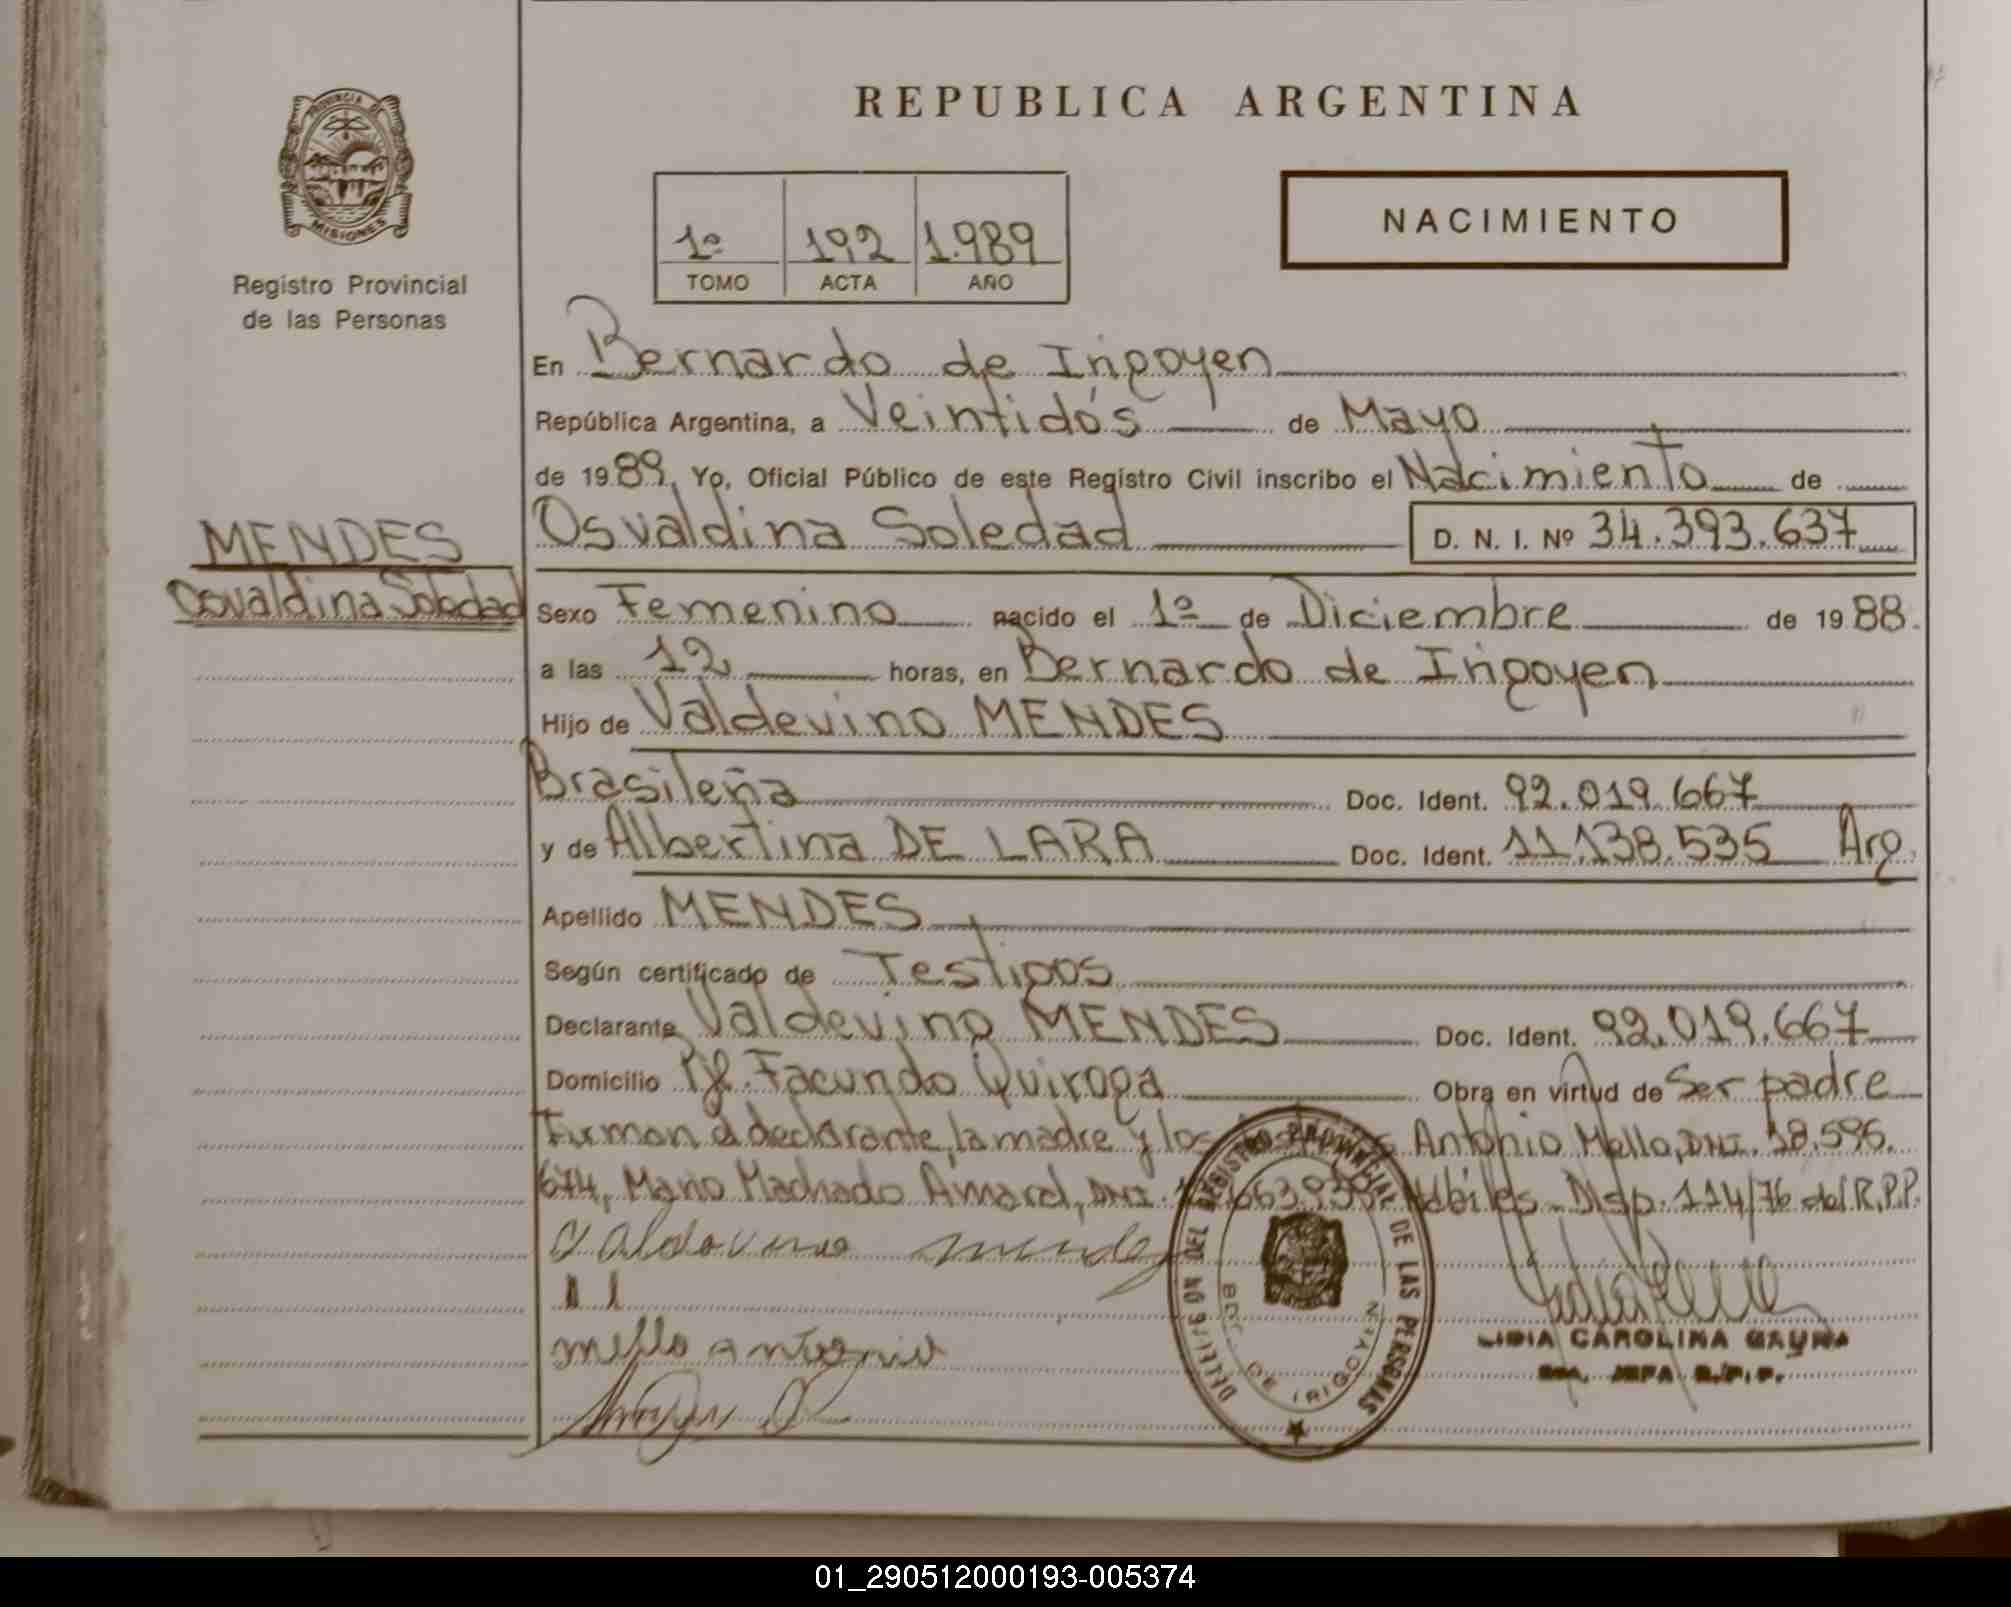 REPUBLICA ARGENTINA
PROVINCIA DE
MISIONES
Registro Provincial
de las Personas
1º 192 1.989
TOMO ACTA AÑO
NACIMIENTO
En Bernardo de Irigoyen
República Argentina, a Veintidós de Mayo
de 1989. Yo, Oficial Público de este Registro Civil inscribo el Nacimiento de
MENDES
Osvaldina Soledad
Osvaldina Soledad D. N. I. Nº 34.393.637
Sexo Femenino nacido el 1º de Diciembre de 1988.
a las 12 horas, en Bernardo de Irigoyen
Hijo de Valdevino MENDES
Brasileña Doc. Ident. 92.019.667
y de Albertina DE LARA Doc. Ident. 11.138.535 Arg.
Apellido MENDES
Según certificado de Testigos
Declarante Valdevino MENDES Doc. Ident. 92.019.667
Domicilio Pje. Facundo Quiroga Obra en virtud de Ser padre
Firman el declarante, la madre y los Antonio Mello, DNI. 18.596.
674, Mario Machado Amaral, DNI. Hábiles - Disp. 114/76 del R.P.P.
Valdevino mendes
mello antonio
DELEGACION DEL REGISTRO PROVINCIAL DE LAS PERSONAS
BDO. DE IRIGOYEN
LIDIA CAROLINA GAUNA
JEFA R.P.P.
01_290512000193-005374